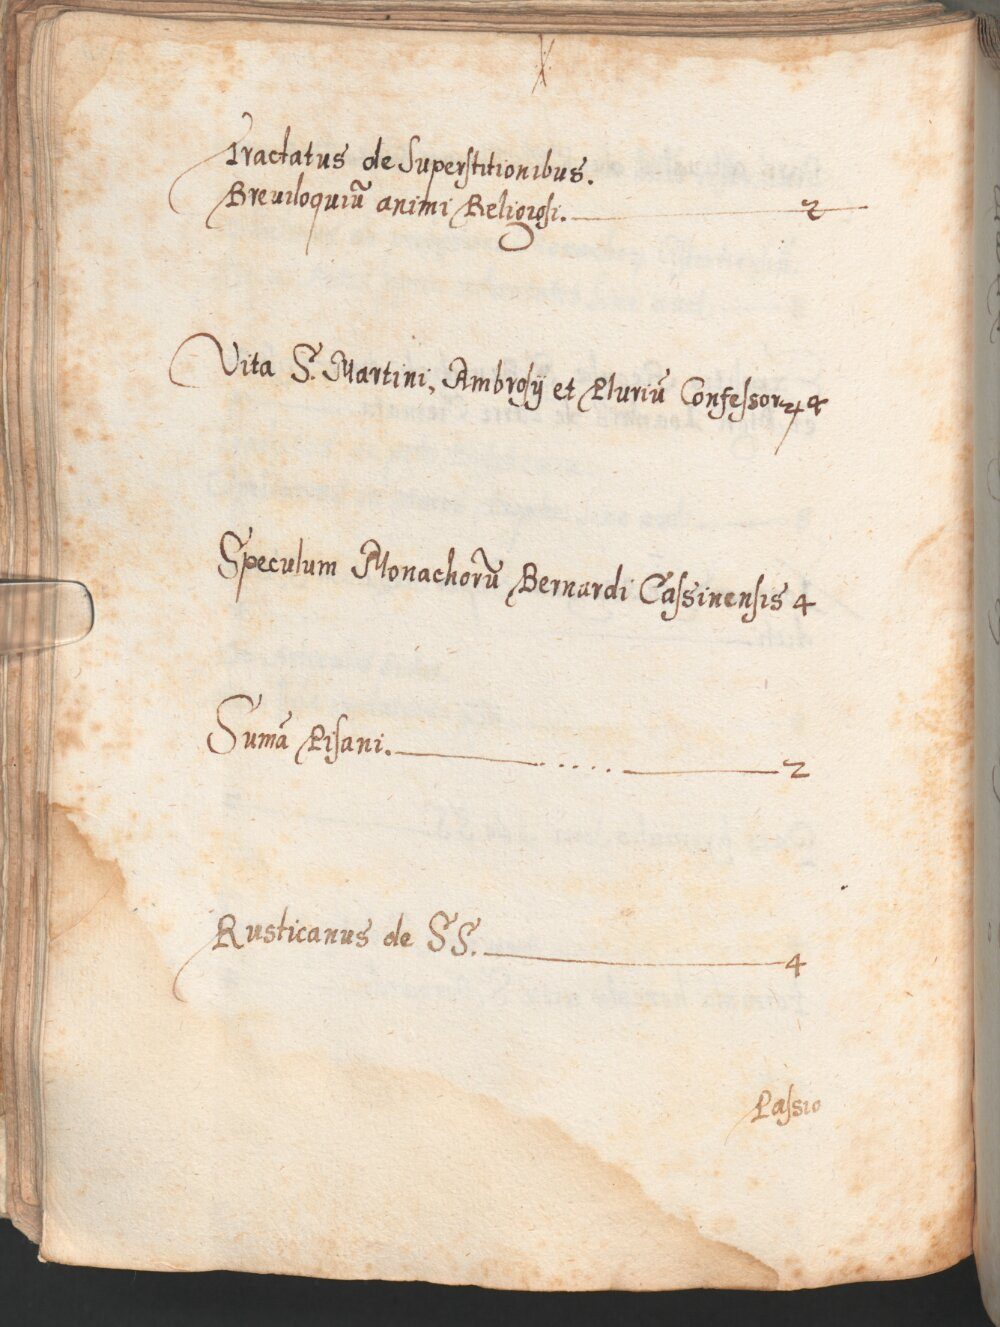 Tractatus de Superstitionibus.
Breuiloquiū animi Religiosi. 2
Vita S. Martini, Ambrosij et Pluriū Confessorꝝ 4
Speculum Monachorū Bernardi Cassinensis 4
Sumā Pisani. ..... 2
Rusticanus de SS. 4
Passio